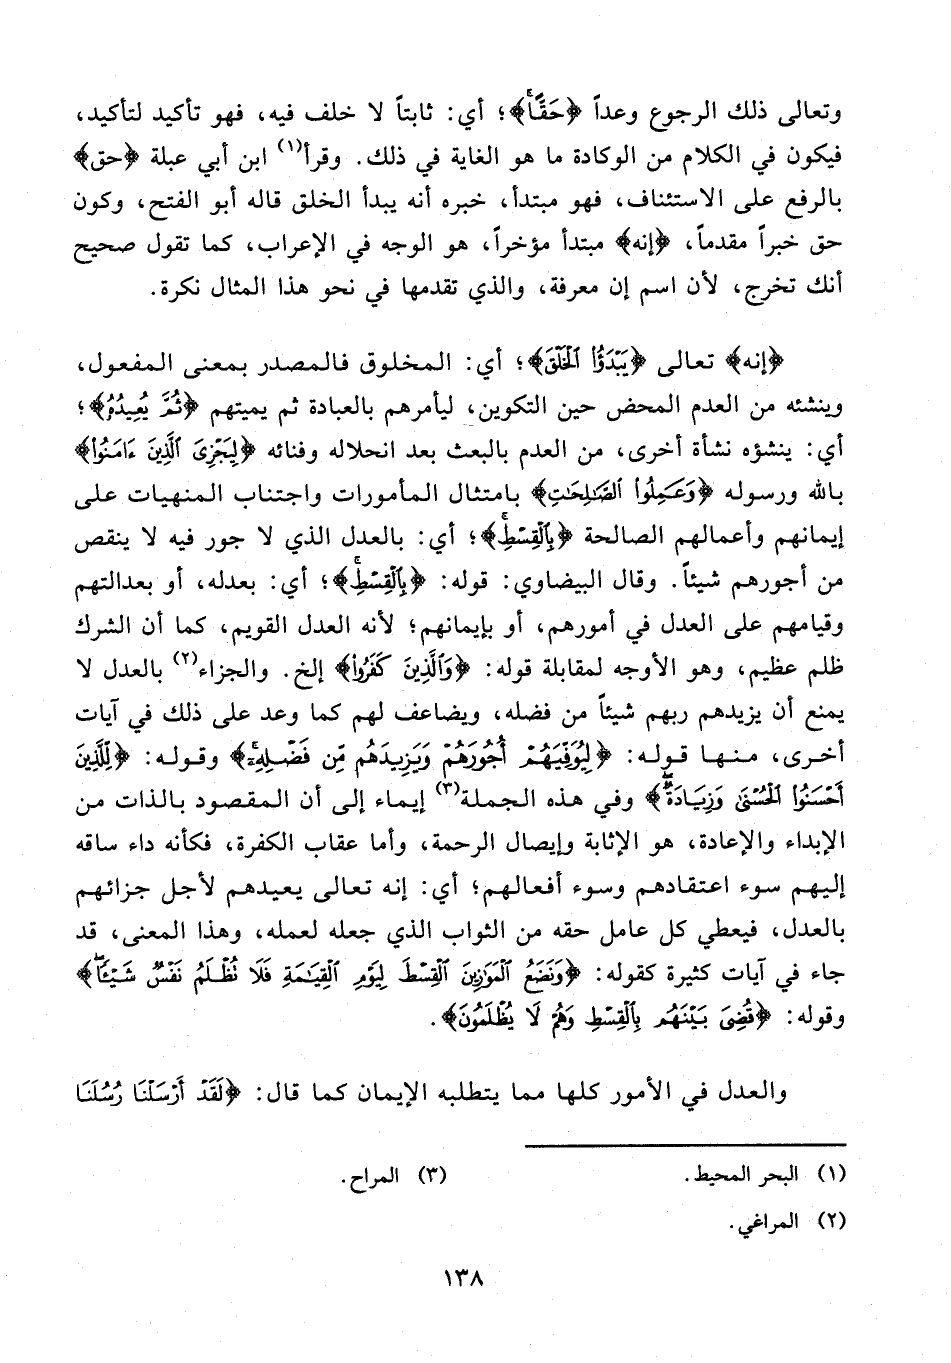 وتعالى ذلك الرجوع وعداً ﴿حَقًّاۚ﴾؛ أي: ثابتاً لا خلف فيه، فهو تأكيد لتأكيد،
فيكون في الكلام من الوكادة ما هو الغاية في ذلك. وقرأ(١) ابن أبي عبلة ﴿حق﴾
بالرفع على الاستئناف، فهو مبتدأ، خبره أنه يبدأ الخلق قاله أبو الفتح، وكون
حق خبراً مقدماً، ﴿إنه﴾ مبتدأ مؤخراً، هو الوجه في الإعراب، كما تقول صحيح
أنك تخرج، لأن اسم إن معرفة، والذي تقدمها في نحو هذا المثال نكرة.
﴿إنه﴾ تعالى ﴿يَبْدَؤُا۟ ٱلْخَلْقَ﴾؛ أي: المخلوق فالمصدر بمعنى المفعول،
وينشئه من العدم المحض حين التكوين، ليأمرهم بالعبادة ثم يميتهم ﴿ثُمَّ يُعِيدُهُۥ﴾؛
أي: ينشؤه نشأة أخرى، من العدم بالبعث بعد انحلاله وفنائه ﴿لِيَجْزِىَ ٱلَّذِينَ ءَامَنُوا۟﴾
بالله ورسوله ﴿وَعَمِلُوا۟ ٱلصَّـٰلِحَـٰتِ﴾ بامتثال المأمورات واجتناب المنهيات على
إيمانهم وأعمالهم الصالحة ﴿بِٱلْقِسْطِۚ﴾؛ أي: بالعدل الذي لا جور فيه لا ينقص
من أجورهم شيئاً. وقال البيضاوي: قوله: ﴿بِٱلْقِسْطِۚ﴾؛ أي: بعدله، أو بعدالتهم
وقيامهم على العدل في أمورهم، أو بإيمانهم؛ لأنه العدل القويم، كما أن الشرك
ظلم عظيم، وهو الأوجه لمقابلة قوله: ﴿وَٱلَّذِينَ كَفَرُوا۟﴾ إلخ. والجزاء(٢) بالعدل لا
يمنع أن يزيدهم ربهم شيئاً من فضله، ويضاعف لهم كما وعد على ذلك في آيات
أخرى، منها قوله: ﴿لِيُوَفِّيَهُمْ أُجُورَهُمْ وَيَزِيدَهُم مِّن فَضْلِهِۦۚ﴾ وقوله: ﴿لِّلَّذِينَ
أَحْسَنُوا۟ ٱلْحُسْنَىٰ وَزِيَادَةٌۖ﴾ وفي هذه الجملة(٣) إيماء إلى أن المقصود بالذات من
الإبداء والإعادة، هو الإثابة وإيصال الرحمة، وأما عقاب الكفرة، فكأنه داء ساقه
إليهم سوء اعتقادهم وسوء أفعالهم؛ أي: إنه تعالى يعيدهم لأجل جزائهم
بالعدل، فيعطي كل عامل حقه من الثواب الذي جعله لعمله، وهذا المعنى، قد
جاء في آيات كثيرة كقوله: ﴿وَنَضَعُ ٱلْمَوَٰزِينَ ٱلْقِسْطَ لِيَوْمِ ٱلْقِيَـٰمَةِ فَلَا تُظْلَمُ نَفْسٌ شَيْـًٔاۖ﴾
وقوله: ﴿قُضِىَ بَيْنَهُم بِٱلْقِسْطِ وَهُمْ لَا يُظْلَمُونَ﴾.
والعدل في الأمور كلها مما يتطلبه الإيمان كما قال: ﴿لَقَدْ أَرْسَلْنَا رُسُلَنَا
(١) البحر المحيط. (٣) المراح.
(٢) المراغي.
١٣٨